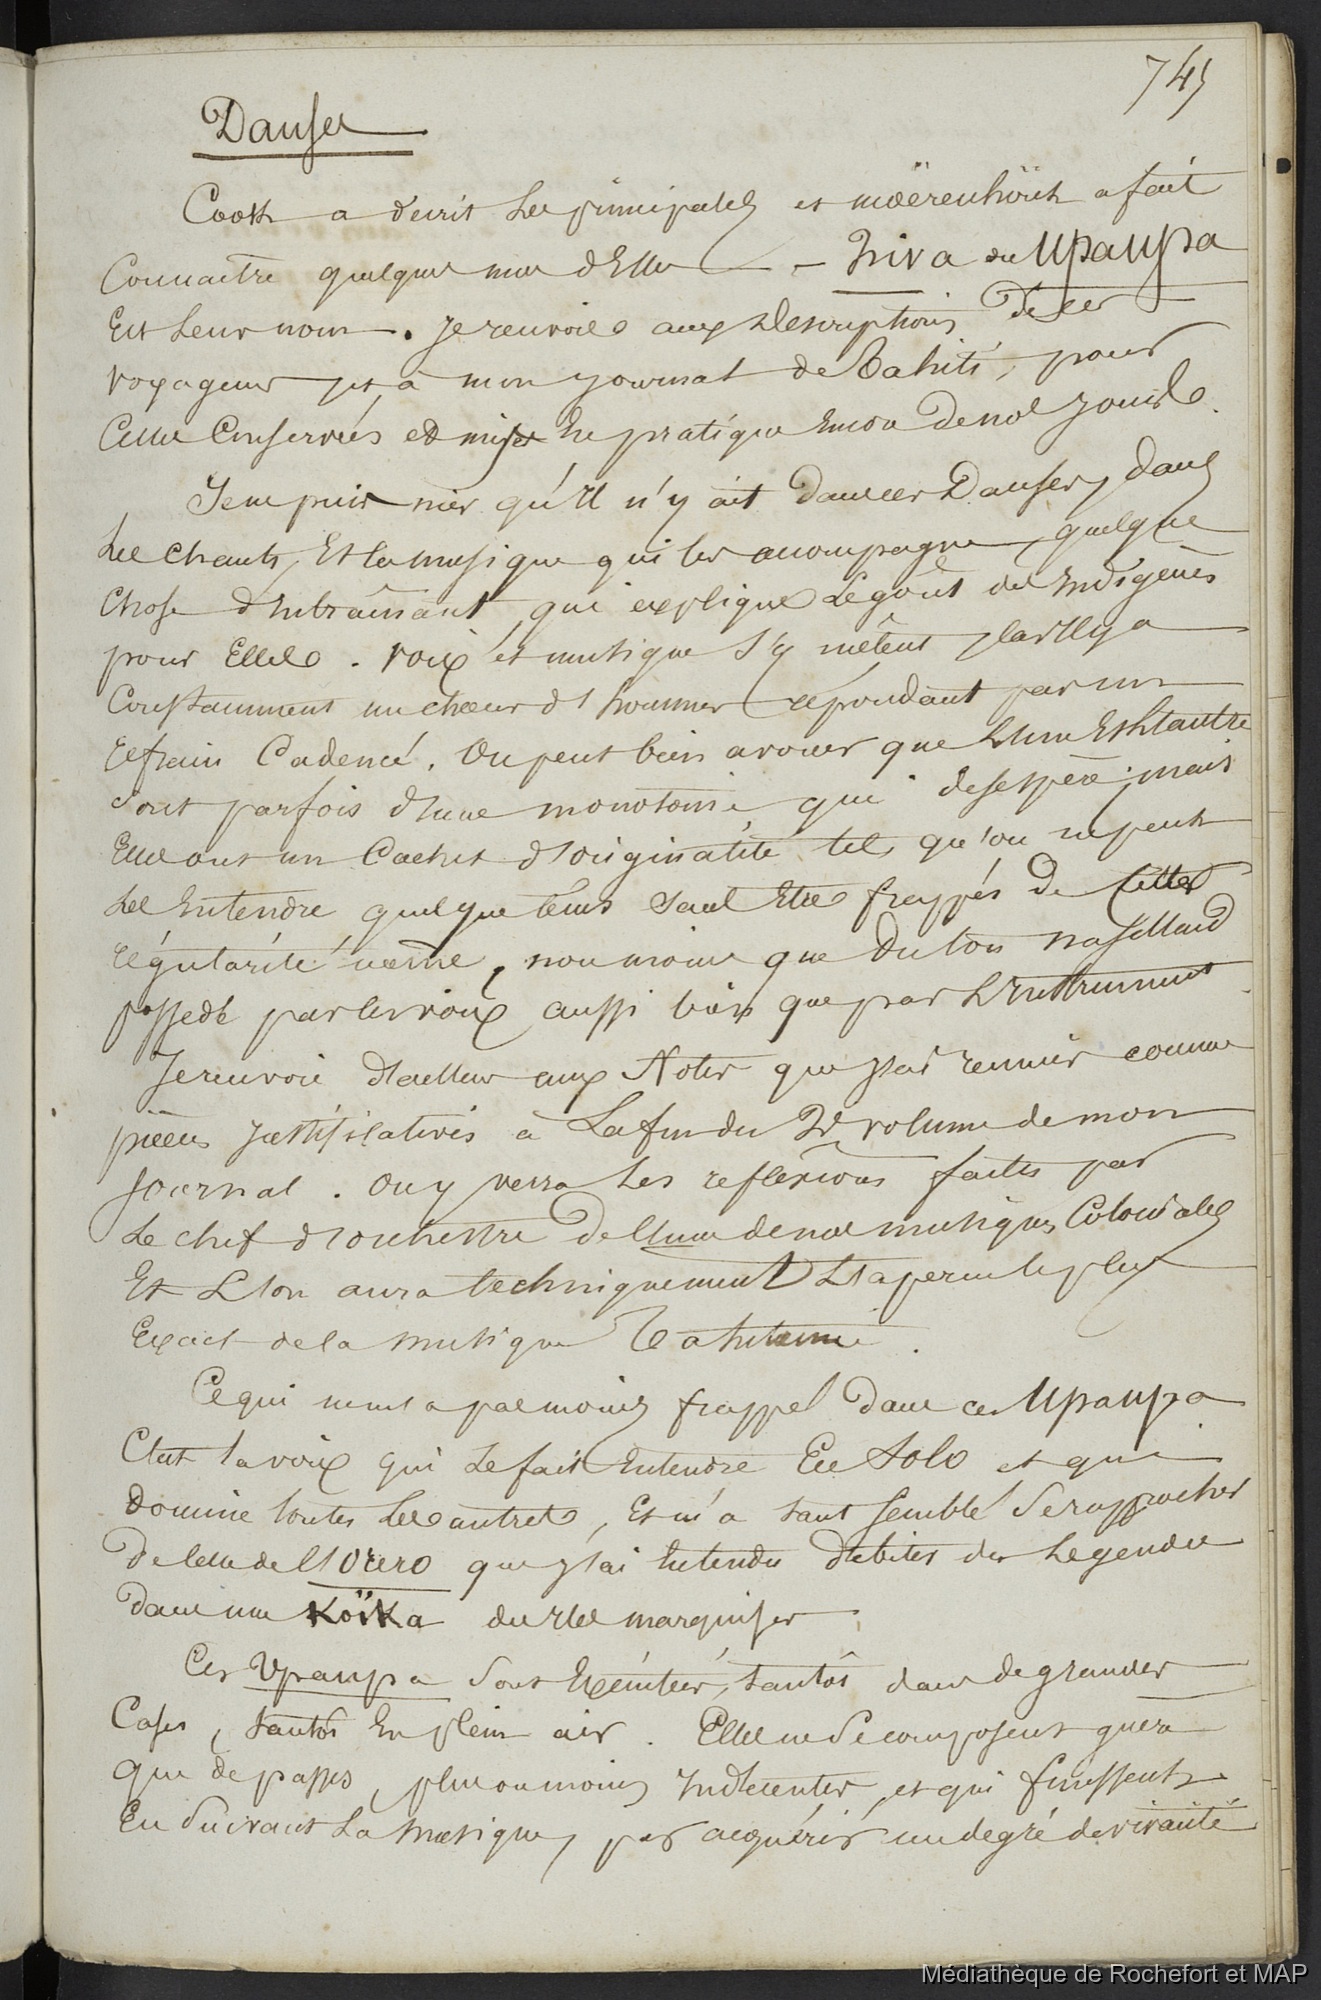 745
Danses
Cook a décrit les principales et moërenhoüt a fait
Connaitre quelques unes d'Elles — Hiva ou Upaupa
Est leur nom. Je renvoie aux descriptions de ces
voyageurs et à mon journal de Tahiti, pour
Celles Conservées et mises En pratique Encore de nos jours.
Je ne puis nier qu'Il n'y ait dans ces Danses, dans
Les Chants, Et la musique qui les accompagne, quelque
Chose d'Entrainant, qui explique Le goût des Indigènes
pour Elles. Voix et musique s'y mêlent, car Il y a
Constamment un chœur d'hommes répondant par un
refrain Cadencé. On peut bien avouer que L'une Et L'autre
sont parfois d'une monotonie qui desespère; mais
Elles ont un Cachet d'originalité tel, qu'on ne peut
Les Entendre quelque tems sans Etre frappés de cette
régularité même, non moins que du ton nasillard
possedé par les voix aussi bien que par L'Instrument.
Je renvoie d'ailleurs aux Notes que j'ai reunies comme
pièces justificatives à La fin du 2e volume de mon
journal. On y verra Les reflexions faites par
Le chef d'orchestre de l'une de nos musiques Coloniales
Et L'on aura techniquement L'aperçu le plus
Exact de la musique Tahitienne.
Ce qui nous a pas moins frappé dans ces Upaupa
C'est la voix qui se fait Entendre En Solo et qui
Domine toutes Les autres, Et m'a tant semblé se rapprocher
De celle de l'Orero que j'ai Entendu débiter des Legendes
dans une Koïka des Iles marquises.
Ces Upaupa sont Exécutées, tantôt dans de grandes
Cases, tantôt En plein air. Elles ne se composent guère
que de passes, plus ou moins Indécentes, et qui finissent
En suivant La musique, par acquérir un degré de vivacité
Médiathèque de Rochefort et MAP